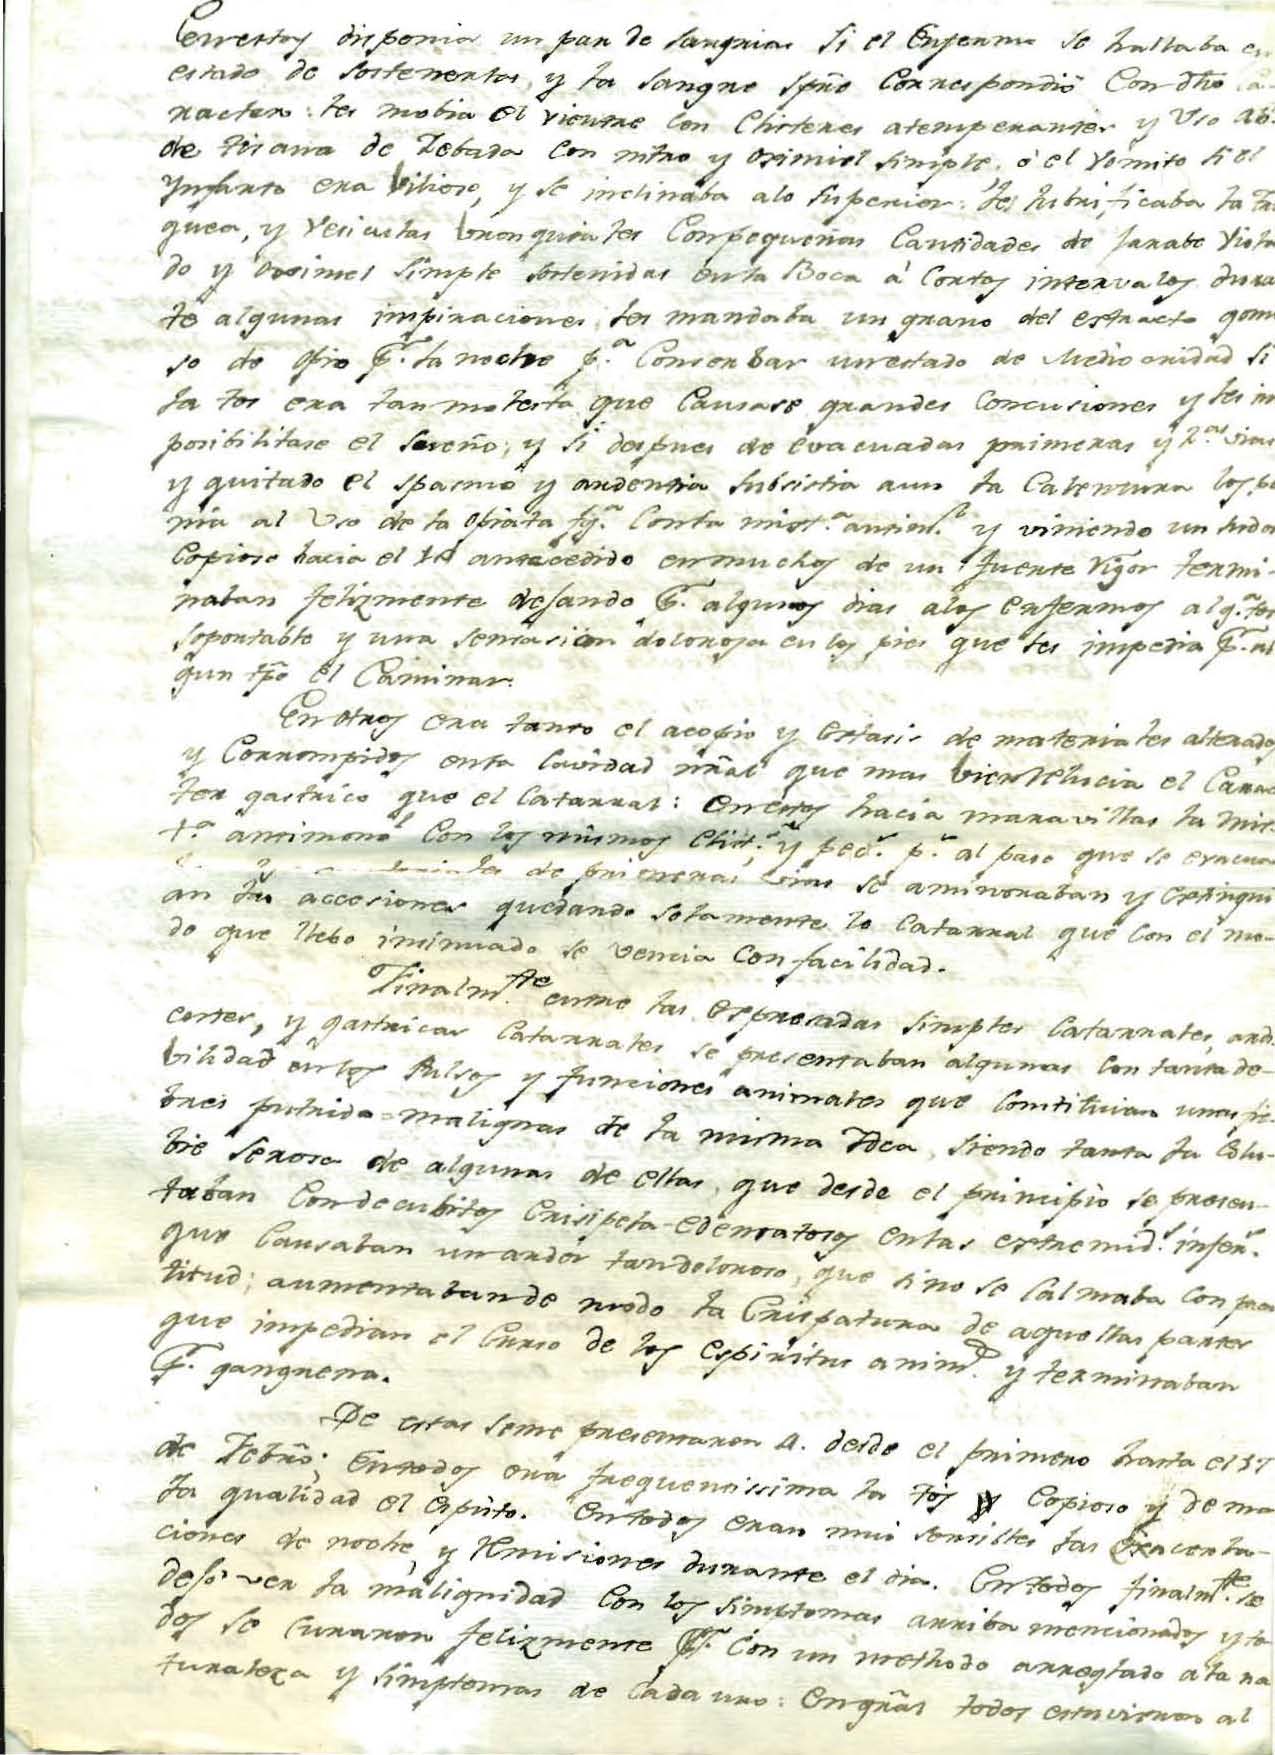 En estos disponia un par de sangrias si el Enfermo se hallaba en
estado de sostenerlas, y la sangre spre. Correspondió Con dho ca-
racter: les mobia el vientre con Clisteres atemperantes y Uso ab.
de tisana de Zebada con nitro y oximiel simple, ó el vomito si el
Ynfarto era bilioso, y se inclinaba alo superior: les lubrificaba la Tra
quea, y Vesiculas bronquiales Conpequeñas Cantidades de Jarabe Viola
do y Ooximel simple sostenidas enla Boca á Cortos intervalos duran
te algunas inspiraciones, les mandaba un grano del extracto gomo
so de opio pr. la noche pa. Conserbar unestado de Mediocridad si
la tos era tan molesta que Causase grandes Concusiones y les im
posibilitase el sueño; y si despues de evacuadas primeras y 2.as vias
y quitado el spasmo y ardentia subsistia aun la Calentura los po
nia al Uso de la opiata fga. Conla mixt.a antim.l y viniendo un sudor
Copioso hacia el 14 antecedido enmuchos de un fuerte Rigor termi-
naban felizmente dejando pr. algunos dias alos enfermos alg.a tos
soportable y una sensacion dolorosa en los pies que les impedia pr. al
gun tpo el Caminar.
En otros era tanto el acopio y extasis de materiales alterados
y Corrompidos enla Cavidad nral que mas bien relucia el Carac
ter gastrico que el Catarral: en estos hacia maravillas la mix-
t.a antimonl Con los mismos Clist.s y ped.s p.s al paso que se evacua
de primeras vias se aminoraban y extingui
an las accesiones quedando solamente lo Catarral que Con el mo-
do que llebo insinuado se vencia Con facilidad.
Finalm.te entre las expresadas simples Catarrales, ard.
centes, y gastricas Catarrales se presentaban algunas Con tanta de-
bilidad enlos Pulsos y funciones animales que Constituian unas fie-
bres putrido=malignas de la misma Idea, siendo tanta la Colu-
bie serosa de algunas de ellas, que desde el principio se presen-
taban Con decubitos Erisipela-edematosos enlas extremid.s infer.s
que Causaban un ardor tan doloroso, que si no se Calmaba Con pron
titud; aumentaban de modo la Crispatura de aquellas partes
que impedian el Curso de los espiritus anim.s y terminaban
pr. gangrena.
De estas seme presentaron 11. desde el primero hasta el 17
de Febro; Entodos era frequentissima la tos y Copioso y de ma
la qualidad el esputo. Entodos eran mui sensibles las Exacerba-
ciones de noche, y Remisiones durante el dia. Entodos finalm.te se
dejó ver la malignidad Con los simptomas arriba mencionados y to
dos se Curaron felizmente pr. Con un methodo arreglado ala na
turaleza y simptomas de Cada uno: En gral todos estuvieron al